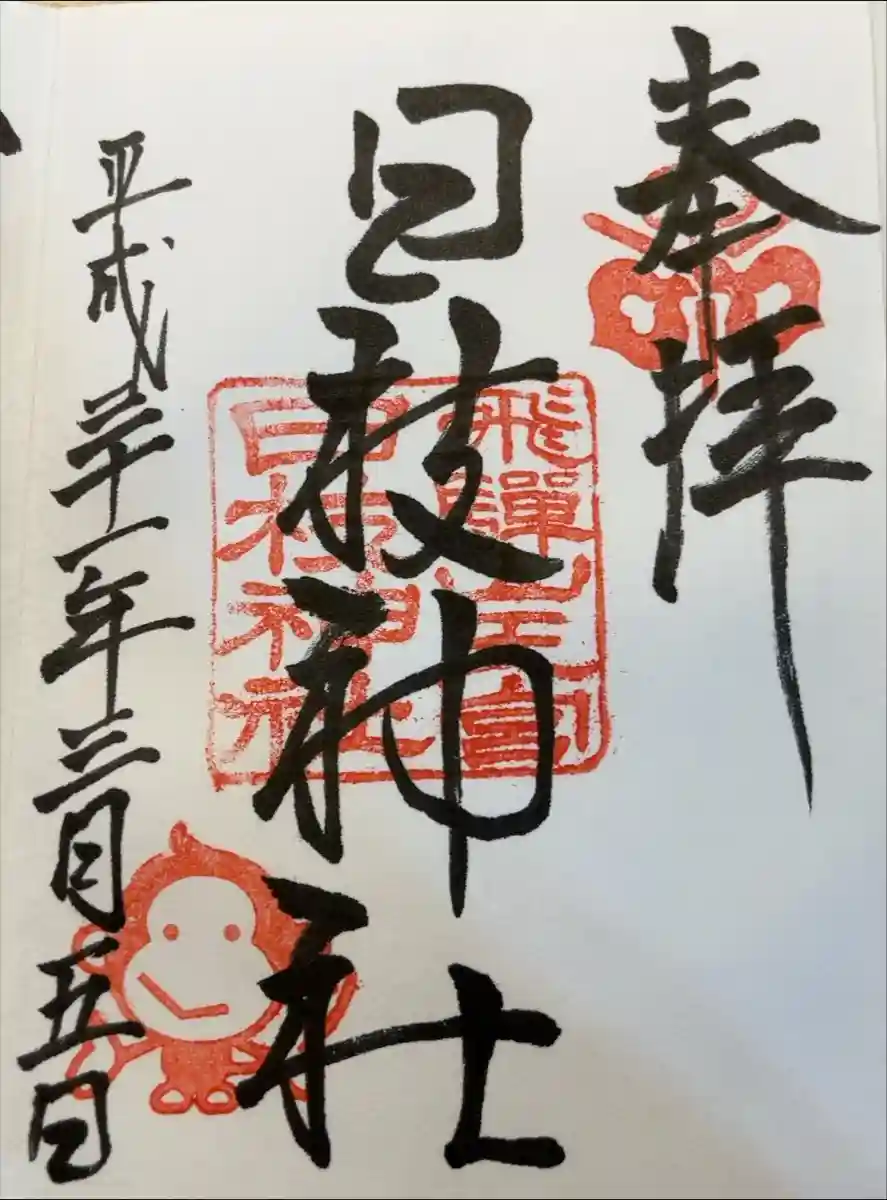 奉拝
日枝神社
飛驒山王宮
日枝神社
平成三十一年三月五日